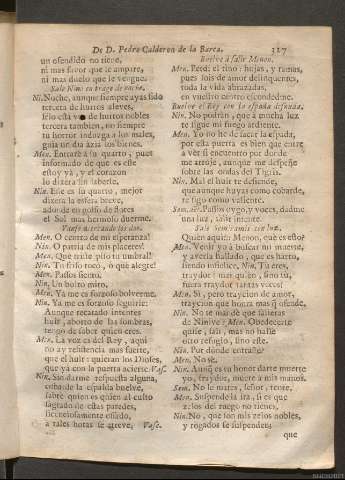 De D. Pedro Calderon de la Barca. 327
un ofendido no tiene,
ni mas favor que le ampare,
ni mas duelo que le vengue.
Sale Nino en trage de noche.
Ni. Noche, aunque siempre ayas sido
tercera de hurtos aleves,
sélo esta vez de hurtos nobles
tercera tambien, no siempre
tu horror induzga a los males,
guia un dia azia los bienes.
Men. Entrare a su quarto, pues
informado de que es este
estoy yà, y el corazon
lo dixera sin saberlo.
Nin. Este es su quarto, mejor
dixera la esfera breve,
adonde en golfo de flores
el Sol mas hermoso duerme.
Vanse acercando los dos.
Men. O centro de mi esperança!
Nin. O patria de mis placeres!
Men. Que triste piso tu umbral!
Nin. Tu friso toco, ò què alegre!
Men. Passos siento.
Nin. Un bolto miro.
Men. Ya me es forzoso bolverme.
Nin. Ya me es forzoso seguirle:
Aunque recatado intentes
huir, aborto de las sombras,
tengo de saber quien eres.
Men. La voz es del Rey, aqui
no ay resistencia mas fuerte,
que el huir: quieran los Dioses,
que yà con la puerta acierte. Vase.
Nin. Sin darme respuesta alguna,
cobarde la espalda buelve,
sabrè quien es quien al culto
sagrado de estas paredes,
licenciosamente ossado,
a tales horas se atreve. Vase.
Buelve à salir Menon.
Men. Peed: el tino: hojas, y ramas,
pues sois de amor delinquentes,
toda la vida abrazadas,
en vuestro centro escondedme.
Buelve el Rey con la espada desnuda.
Nin. No podràn, que à mucha luz
te sigue mi fuego ardiente.
Men. Yo no he de sacar la espada,
por esta puerta es bien que entre
a vèr si encuentro por donde
me arroje, aunque me despeñe
sobre las ondas del Tigris.
Nin. Mal el huir te desiende,
que aunque huyas como cobarde,
te sigo como valiente.
Sem. dẽt. Passos oygo, y voces, dadme
una luz, salir intente.
Sale Semiramis con luz.
Quien aqui:: Menon, què es esto?
Men. Venir yo à buscar mi muerte,
y averla hallado, que es harto,
siendo infelice. Nin. Tu eres,
traydor? mas quien, sino tù,
fuera traydor tantas veces!
Men. Si, pero traycion de amor,
traycion que honra mas q̃ ofende.
Nin. No te mandè que salieras
de Ninive? Men. Obedecerte
quise, salì, mas no hallè
otro refugio, sino este.
Nin. Por dònde entraste?
Men. No sè.
Nin. Aunq̃ es tu honor darte muerte
yo, traydor, muere a mis manos.
Sem. No le mates, señor, tente.
Men. Suspende la ira, si es que
zelos del ruego no tienes,
Nin. No, que son mis zelos nobles,
y rogados se suspenden;
que